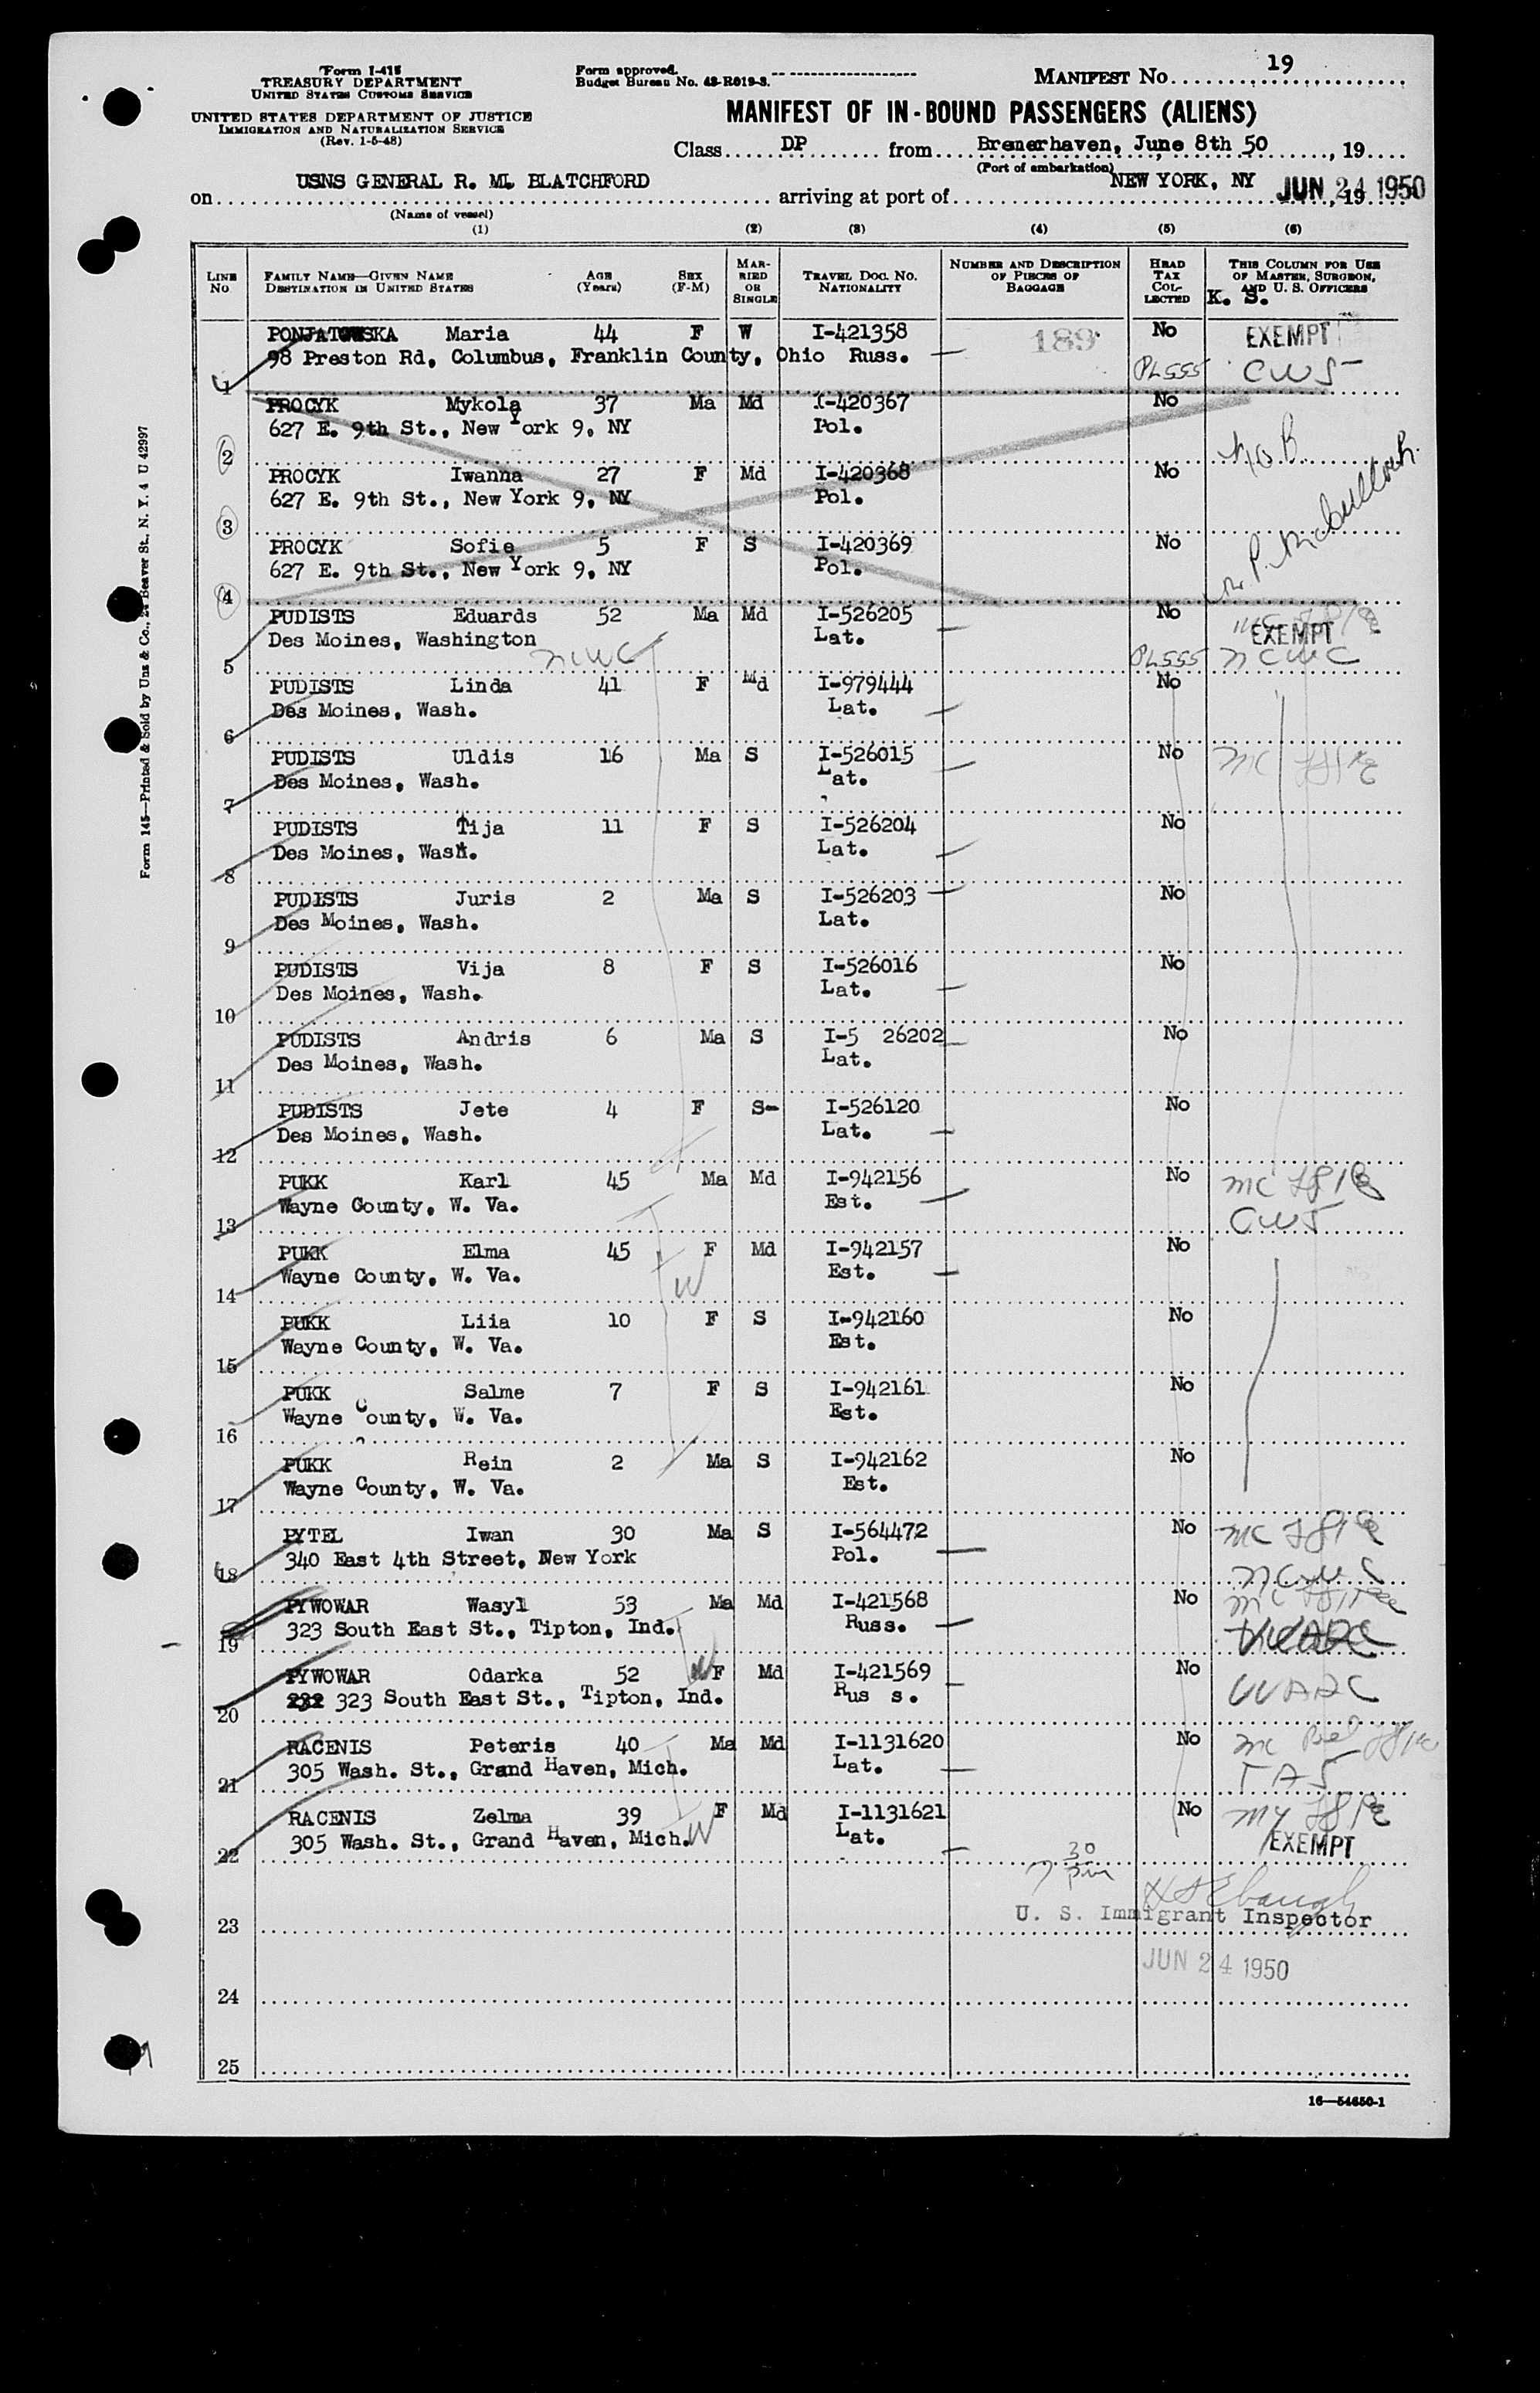 Form I-415
TREASURY DEPARTMENT
UNITED STATES CUSTOMS SERVICE
UNITED STATES DEPARTMENT OF JUSTICE
IMMIGRATION AND NATURALIZATION SERVICE
(Rev. 1-5-48)
Form approved.
Budget Bureau No. 43-R019-3.
MANIFEST No. 19
MANIFEST OF IN-BOUND PASSENGERS (ALIENS)
Class DP from Bremerhaven, June 8th 50, 19
(Port of embarkation)
on USNS GENERAL R. M. BLATCHFORD arriving at port of NEW YORK, NY JUN 24 1950, 19
(Name of vessel)
(1) (2) (3) (4) (5) (6)
LINE NO. FAMILY NAME—GIVEN NAME DESTINATION IN UNITED STATES AGE (Years) SEX (F-M) MARRIED OR SINGLE TRAVEL DOC. NO. NATIONALITY NUMBER AND DESCRIPTION OF PIECES OF BAGGAGE HEAD TAX COLLECTED THIS COLUMN FOR USE OF MASTER, SURGEON, AND U. S. OFFICERS
K. S.
PONJATOWSKA Maria 44 F W I-421358 189 No EXEMPT
1 98 Preston Rd, Columbus, Franklin County, Ohio Russ. PL555 CWS
PROCYK Mykola 37 Ma Md I-420367 No
2 627 E. 9th St., New York 9, NY Pol.
PROCYK Iwanna 27 F Md I-420368 No
3 627 E. 9th St., New York 9, NY Pol.
PROCYK Sofie 5 F S I-420369 No
4 627 E. 9th St., New York 9, NY Pol.
PUDISTS Eduards 52 Ma Md I-526205 No EXEMPT
5 Des Moines, Washington Lat. NCWC PL555 NCWC
PUDISTS Linda 41 F Md I-979444 No
6 Des Moines, Wash. Lat.
PUDISTS Uldis 16 Ma S I-526015 No
7 Des Moines, Wash. Lat.
PUDISTS Tija 11 F S I-526204 No
8 Des Moines, Wash. Lat.
PUDISTS Juris 2 Ma S I-526203 No
9 Des Moines, Wash. Lat.
PUDISTS Vija 8 F S I-526016 No
10 Des Moines, Wash. Lat.
PUDISTS Andris 6 Ma S I-5 26202 No
11 Des Moines, Wash. Lat.
PUDISTS Jete 4 F S- I-526120 No
12 Des Moines, Wash. Lat.
PUKK Karl 45 Ma Md I-942156 No
13 Wayne County, W. Va. Est. CWS
PUKK Elma 45 F Md I-942157 No
14 Wayne County, W. Va. Est. W
PUKK Liia 10 F S I-942160 No
15 Wayne County, W. Va. Est.
PUKK Salme 7 F S I-942161 No
16 Wayne County, W. Va. Est.
PUKK Rein 2 Ma S I-942162 No
17 Wayne County, W. Va. Est.
PYTEL Iwan 30 Ma S I-564472 No
18 340 East 4th Street, New York Pol. NCWC
PYWOWAR Wasyl 53 Ma Md I-421568 No
19 323 South East St., Tipton, Ind. Russ.
PYWOWAR Odarka 52 W F Md I-421569 No
20 232 323 South East St., Tipton, Ind. Rus s. WARC
RACENIS Peteris 40 Ma Md I-1131620 No
21 305 Wash. St., Grand Haven, Mich. Lat.
RACENIS Zelma 39 F Md I-1131621 No
22 305 Wash. St., Grand Haven, Mich. W Lat. EXEMPT
7 30 pm
23 U. S. Immigrant Inspector
24 JUN 24 1950
25
16—54650-1
Form 145—Printed & Sold by Unz & Co., 24 Beaver St., N. Y. 4 U 42997